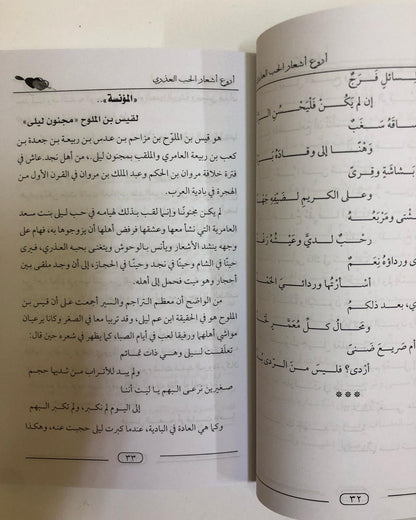 أروع أشعار الحب العذري
ـسائل فرجٌ
إن لم يكُنْ فَلْيَحْسُنِ الـ
ـاقهُ سغبٌ
وَهْنًا إلى وقادهُ
بشاشةٍ وقِرى
وعلى الكريم لضيفِهِ
ـشتى ومَرْبَعهُ
رحْبٌ لديَّ وعيْشهُ
ورداؤه نِعمٌ
أسْأرْتُها وردائيَ
، بعد ذلكمُ
وتخالُ كلَّ مُعمَّرٍ
أم صَريعَ ضَنىً
أرْدى؟ فليسَ منَ الرّدى
***
٣٢
أروع أشعار الحب العذري
«المؤنسة»..
لقيس بن الملوح «مجنون ليلى»
هو قيس بن الملوّح بن مزاحم بن عدس بن ربيعة بن جعدة بن
كعب بن ربيعة العامري والملقب بمجنون ليلى، من أهل نجد.عاش في
فترة خلافة مروان بن الحكم وعبد الملك بن مروان في القرن الأول من
الهجرة في بادية العرب.
لم يكن مجنونًا وإنما لقب بذلك لهيامه في حب ليلى بنت سعد
العامرية التي نشأ معها وعشقها فرفض أهلها أن يزوجوها به، فهام على
وجهه ينشد الأشعار ويأنس بالوحوش ويتغنى بحبه العذري، فيرى
حينًا في الشام وحينًا في نجد وحينًا في الحجاز، إلى أن وجد ملقى بين
أحجار وهو ميت فحمل إلى أهله.
من الواضح أن معظم التراجم والسير أجمعت على أن قيس بن
الملوح هو في الحقيقة ابن عم ليلى، وقد تربيا معا في الصغر وكانا يرعيان
مواشي أهلهما ورفيقا لعب في أيام الصبا، كما يظهر في شعره حين قال:
تعلقت ليلى وهي ذات تمائم
ولم يبد للأتراب من ثديها حجم
صغيرين نرعى البهم يا ليت أننا
إلى اليوم لم نكبر، ولم تكبر البهم
وكما هي العادة في البادية، عندما كبرت ليلى حجبت عنه، وهكذا
٣٣